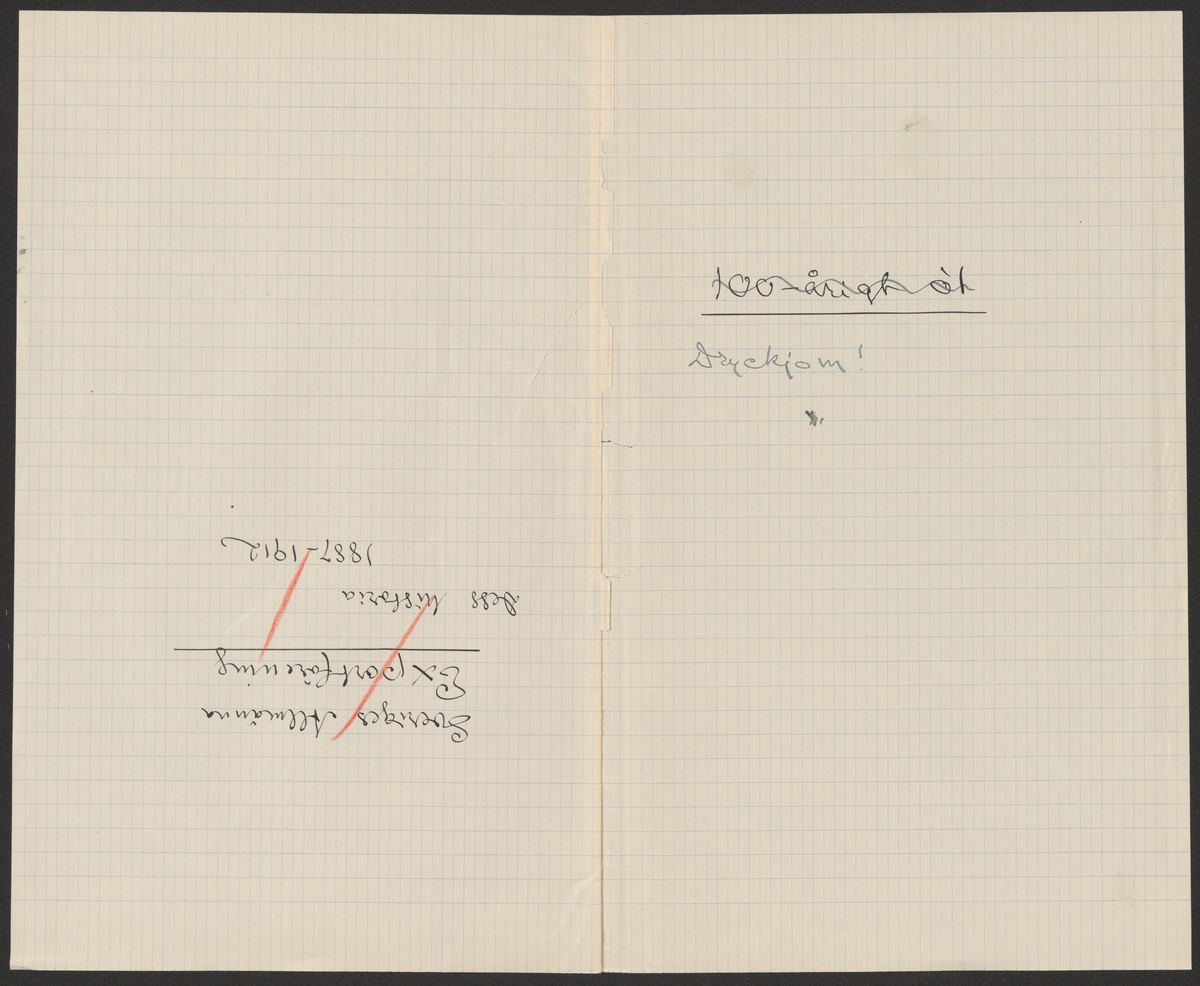 Sveriges Allmänna
Exportförening
Dess historia
1887-1912
100-årigt öl
Dryckjom!